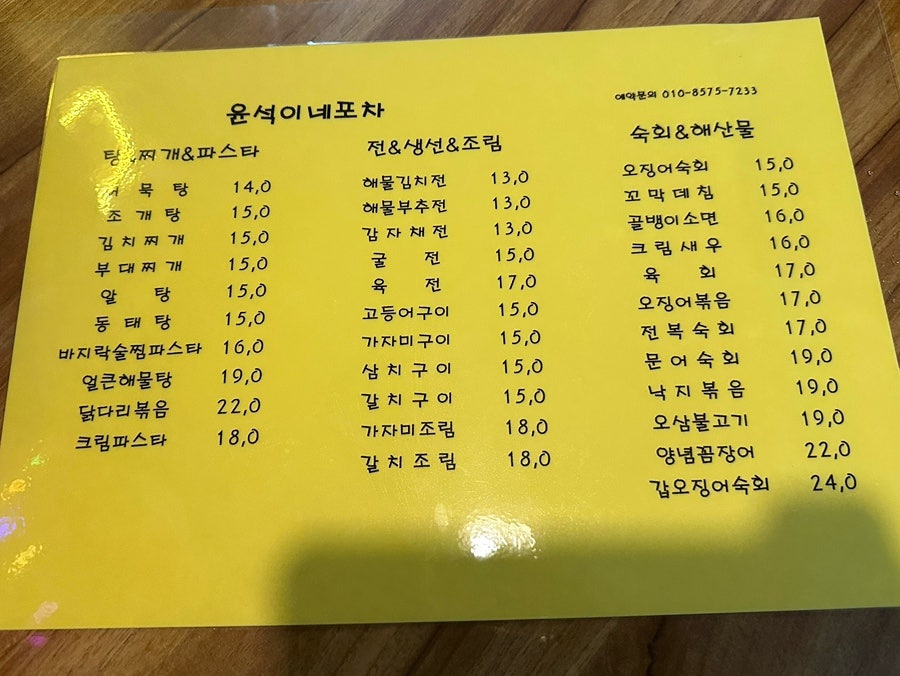 윤석이네포차
예약문의 010-8575-7233
탕&찌개&파스타
어 묵 탕 14,0
조 개 탕 15,0
김 치 찌 개 15,0
부 대 찌 개 15,0
알 탕 15,0
동 태 탕 15,0
바지락술찜파스타 16,0
얼큰해물탕 19,0
닭다리볶음 22,0
크림파스타 18,0
전&생선&조림
해물김치전 13,0
해물부추전 13,0
감 자 채 전 13,0
굴 전 15,0
육 전 17,0
고등어구이 15,0
가자미구이 15,0
삼 치 구 이 15,0
갈 치 구 이 15,0
가자미조림 18,0
갈 치 조 림 18,0
숙회&해산물
오징어숙회 15,0
꼬 막 데 침 15,0
골뱅이소면 16,0
크 림 새 우 16,0
육 회 17,0
오징어볶음 17,0
전 복 숙 회 17,0
문 어 숙 회 19,0
낙 지 볶 음 19,0
오삼불고기 19,0
양념꼼장어 22,0
갑오징어숙회 24,0